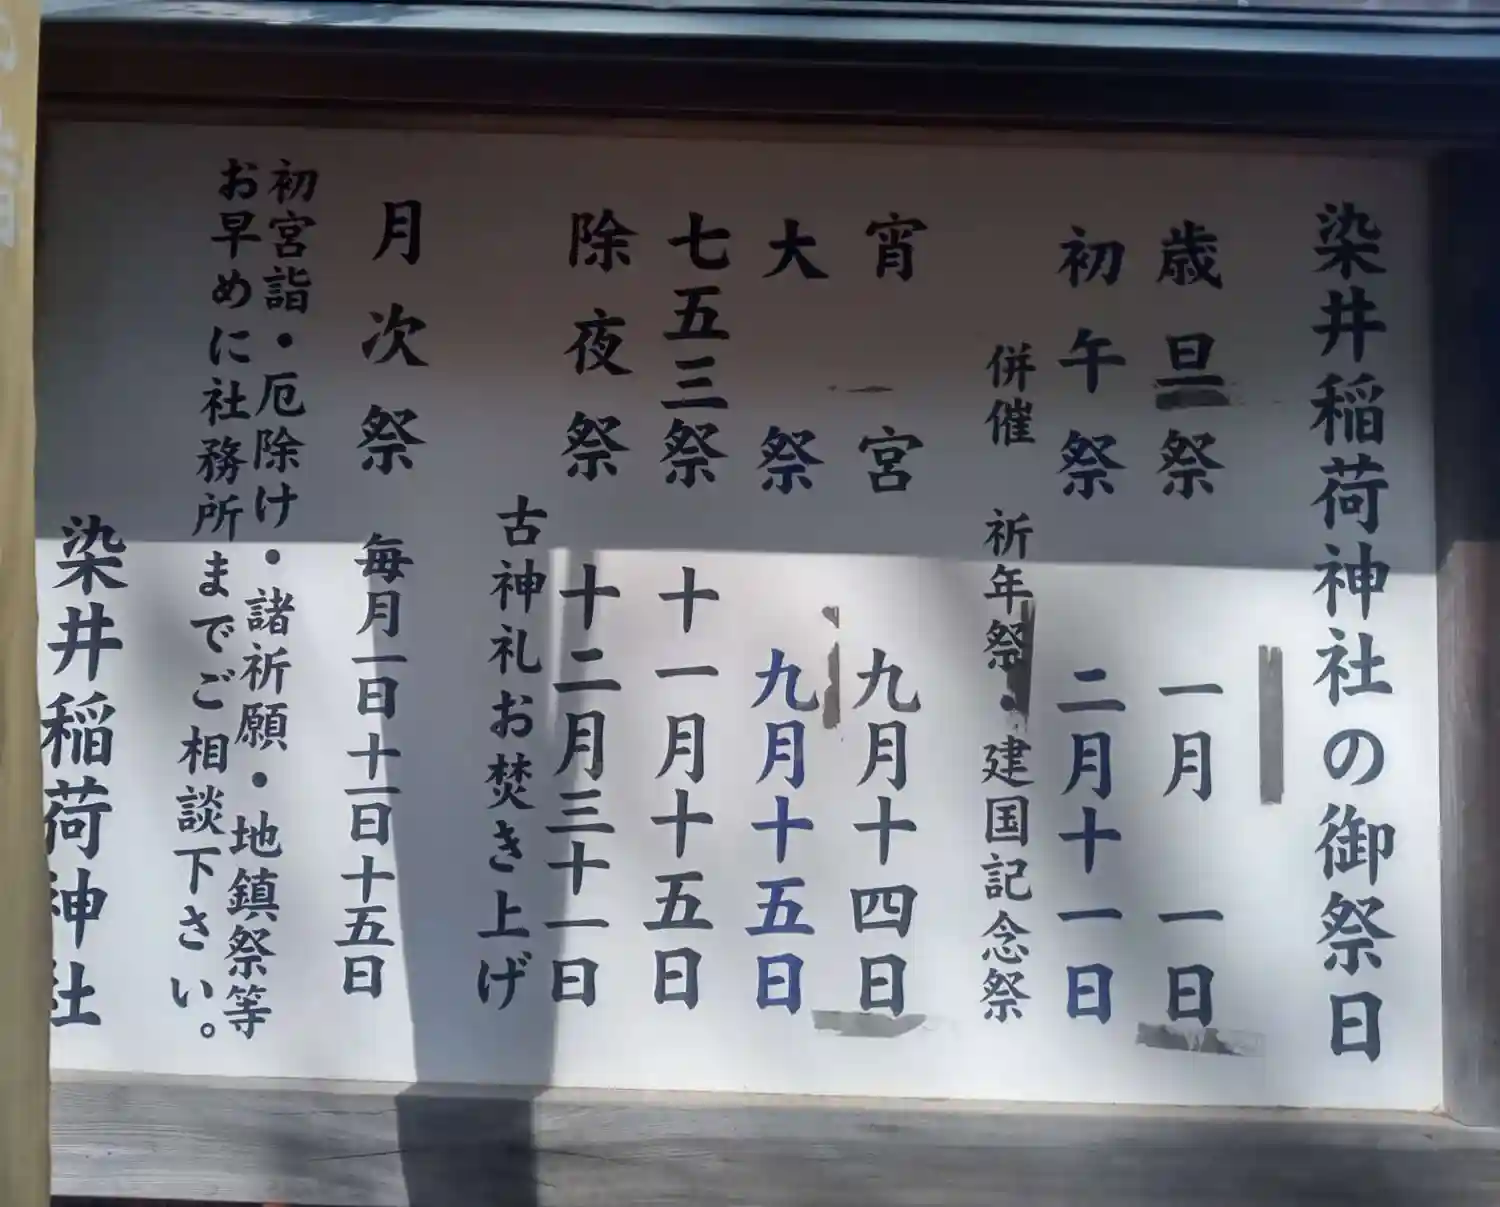 染井稲荷神社の御祭日
歳旦祭 一月一日
初午祭 二月十一日
併催 祈年祭・建国記念祭
宵宮 九月十四日
大祭 九月十五日
七五三祭 十一月十五日
除夜祭 十二月三十一日
古神礼お焚き上げ
月次祭 毎月一日十一日十五日
初宮詣・厄除け・諸祈願・地鎮祭等
お早めに社務所までご相談下さい。
染井稲荷神社